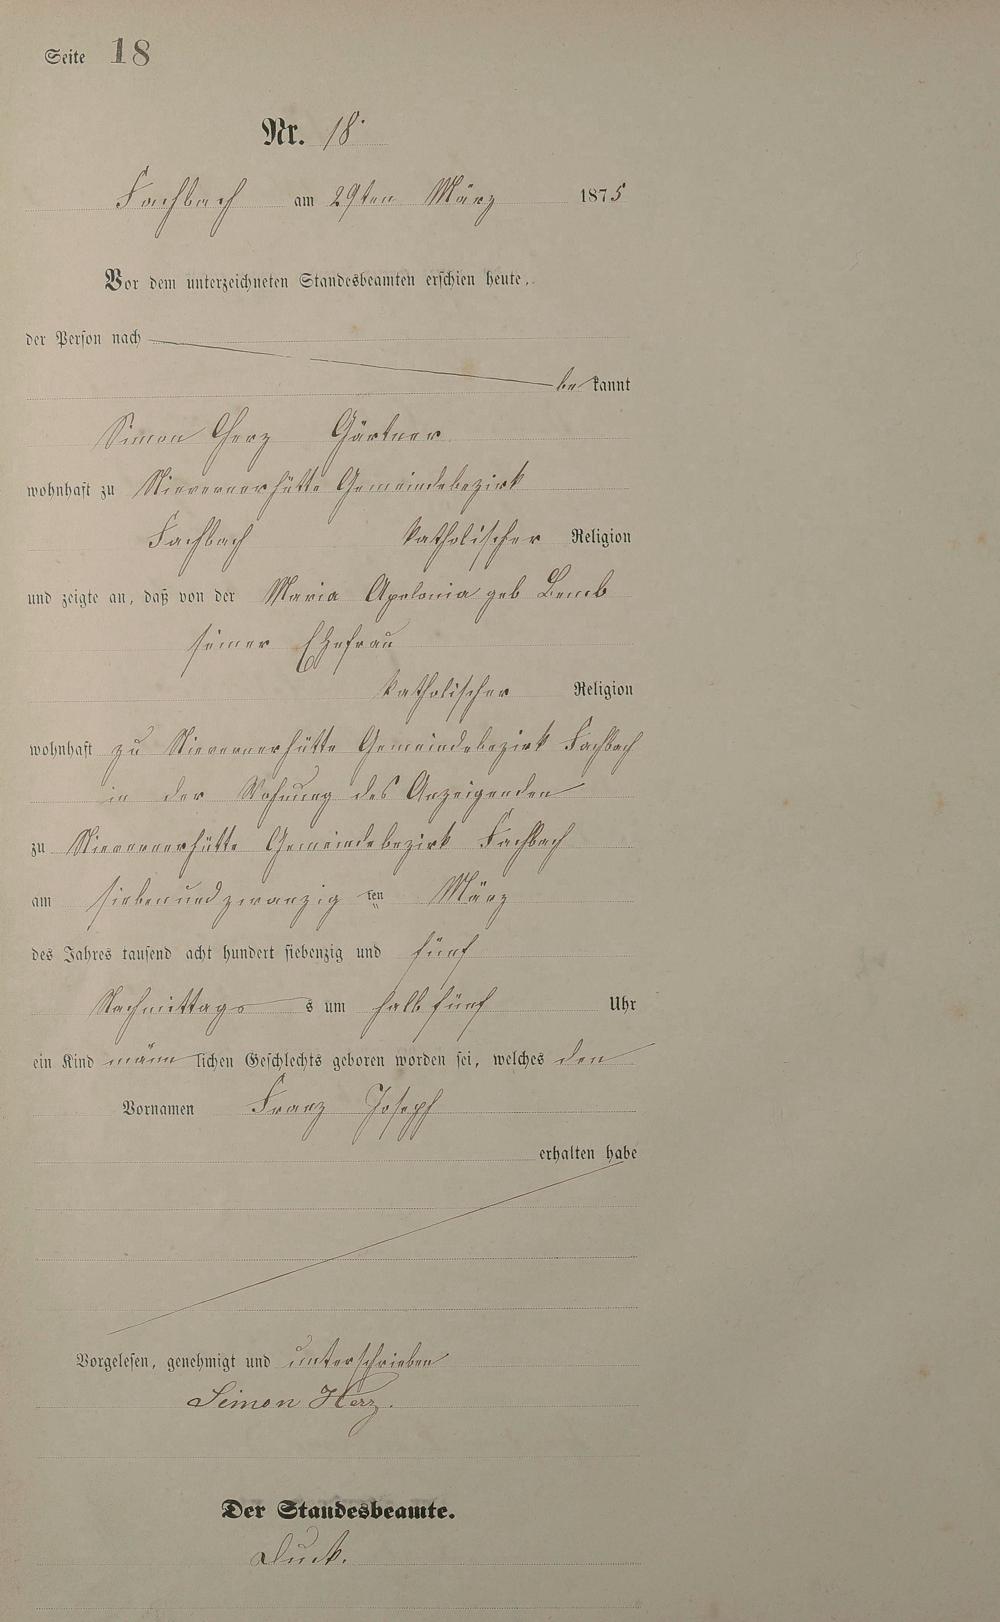 Seite 18
Nr. 18.
Fachbach am 29ten März 1875
Vor dem unterzeichneten Standesbeamten erschien heute,
der Person nach
bekannt
Simon Herz Gärtner
wohnhaft zu Nievernerhütte Gemeindebezirk
Fachbach katholischer Religion
und zeigte an, daß von der Maria Apolonia geb Bemb
seiner Ehefrau
katholischer Religion
wohnhaft zu Nievernerhütte Gemeindebezirk Fachbach
in der Wohnung des Anzeigenden
zu Nievernerhütte Gemeindebezirk Fachbach
am siebenundzwanzigten März
des Jahres tausend acht hundert siebenzig und fünf
Nachmittags um halb fünf Uhr
ein Kind männlichen Geschlechts geboren worden sei, welches den
Vornamen Franz Joseph
erhalten habe
Vorgelesen, genehmigt und unterschrieben
Simon Herz.
Der Standesbeamte.
Duck.